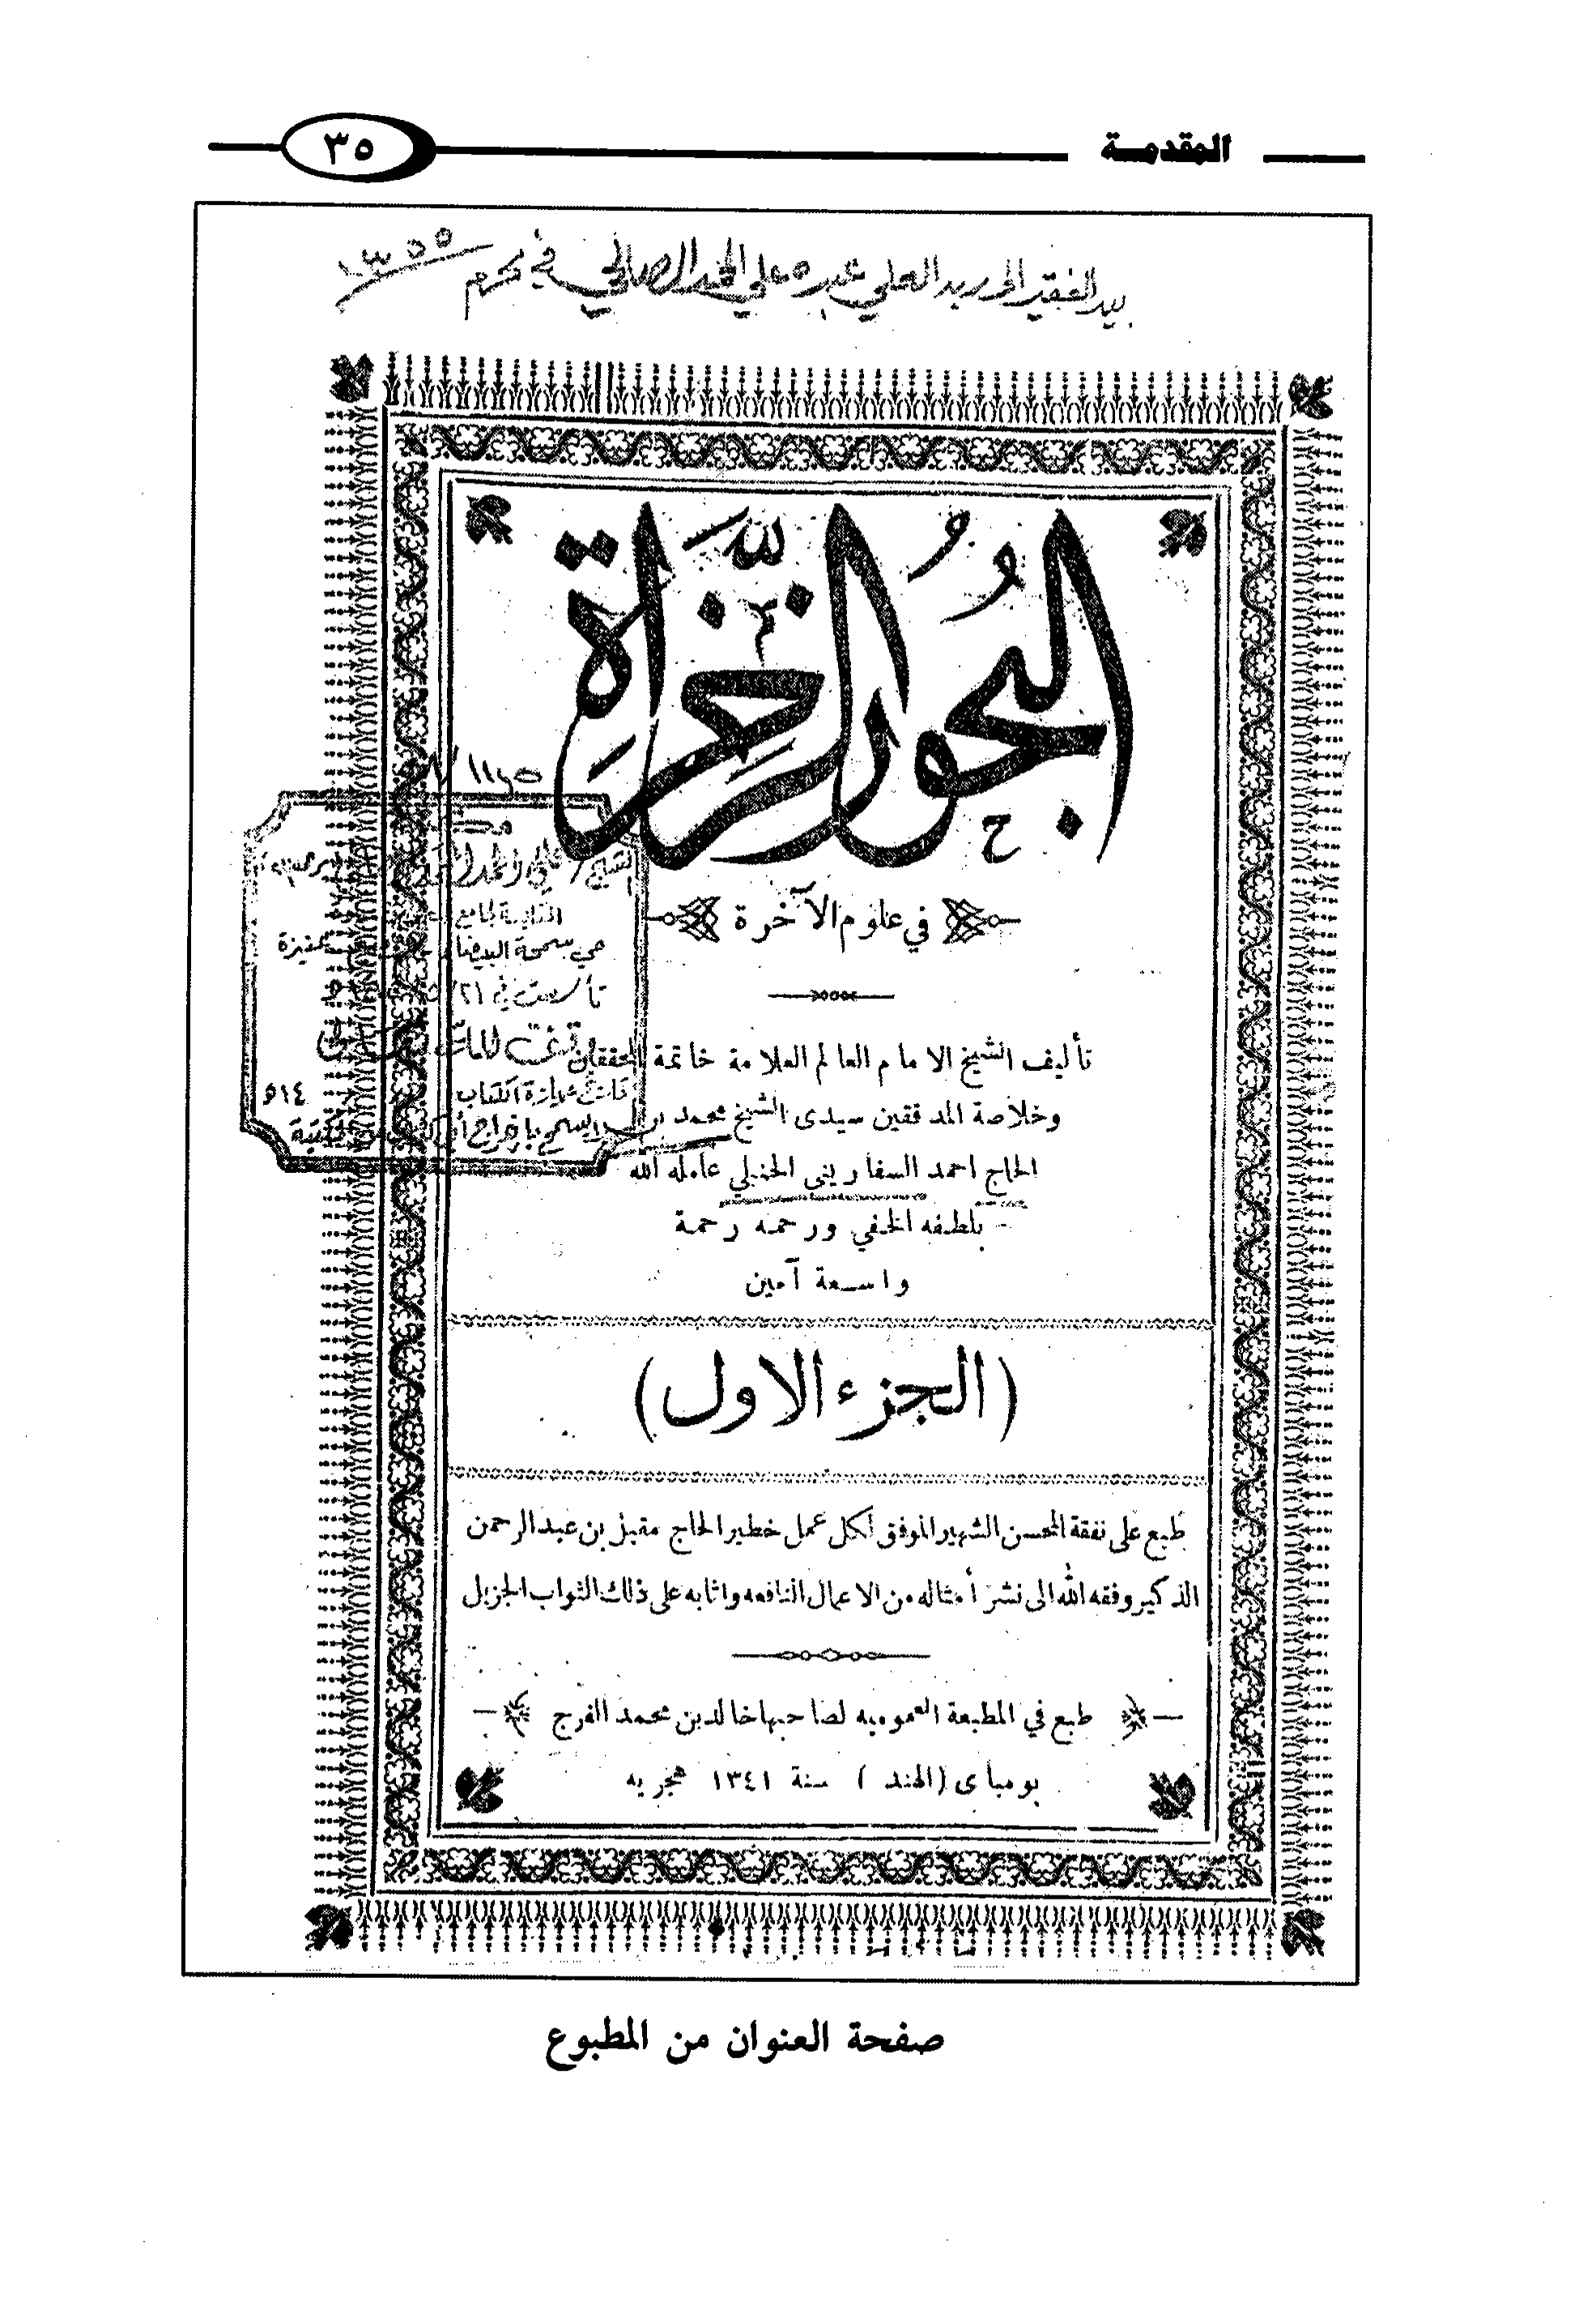 المقدمة
٣٥
بيد الفقير الى ربه العلي عبده علي الحمد الصالحي في محرم ١٣٥٥
البحور الزاخرة
في علوم الآخرة
تأليف الشيخ الامام العالم العلامة خاتمة المحققين
وخلاصة المدققين سيدى الشيخ محمد بن
الحاج احمد السفارينى الحنبلي عامله الله
بلطفه الخفي ورحمه رحمة
واسعة آمين
(الجزء الاول)
طبع على نفقة المحسن الشهير الموفق لكل عمل خطير الحاج مقبل بن عبد الرحمن
الذكير وفقه الله الى نشر أمثاله من الاعمال النافعه واثابه على ذلك الثواب الجزيل
طبع في المطبعة العموميه لصاحبها خالد بن محمد الفرج
بومباى (الهند) سنة ١٣٤١ هجريه
الشيخ / علي الحمد
التابعة لجامع
تأسست في
٥١٤
صفحة العنوان من المطبوع